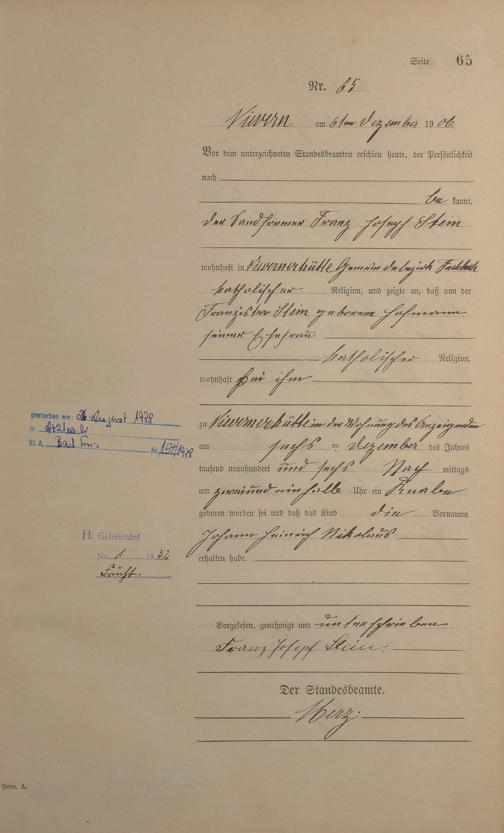 Seite 65
Nr. 65
Nievern am 6ten Dezember 1906.
Vor dem unterzeichneten Standesbeamten erschien heute, der Persönlichkeit
nach
be kannt,
der Sandformer Franz Joseph Stein
wohnhaft in Nievernerhütte Gemeindebezirk Fachbach
katholischer Religion, und zeigte an, daß von der
Franziska Stein geborene Hofmann
seiner Ehefrau
katholischer Religion,
wohnhaft bei ihm
zu Nievernerhütte in der Wohnung des Anzeigenden
am sechs ten Dezember des Jahres
tausend neunhundert und sechs Nach mittags
um zwei und ein halb Uhr ein Knabe
geboren worden sei und daß das Kind die Vornamen
Johann Heinrich Nikolaus
erhalten habe.
Vorgelesen, genehmigt und unterschrieben
Franz Josef Stein.
Der Standesbeamte.
Merz.
gestorben am: 26. August 1978
in
St.A. Bad Ems Nr. 154/1978
H. Geheiratet
Nr. 1 1932
Frücht.
Form. A.